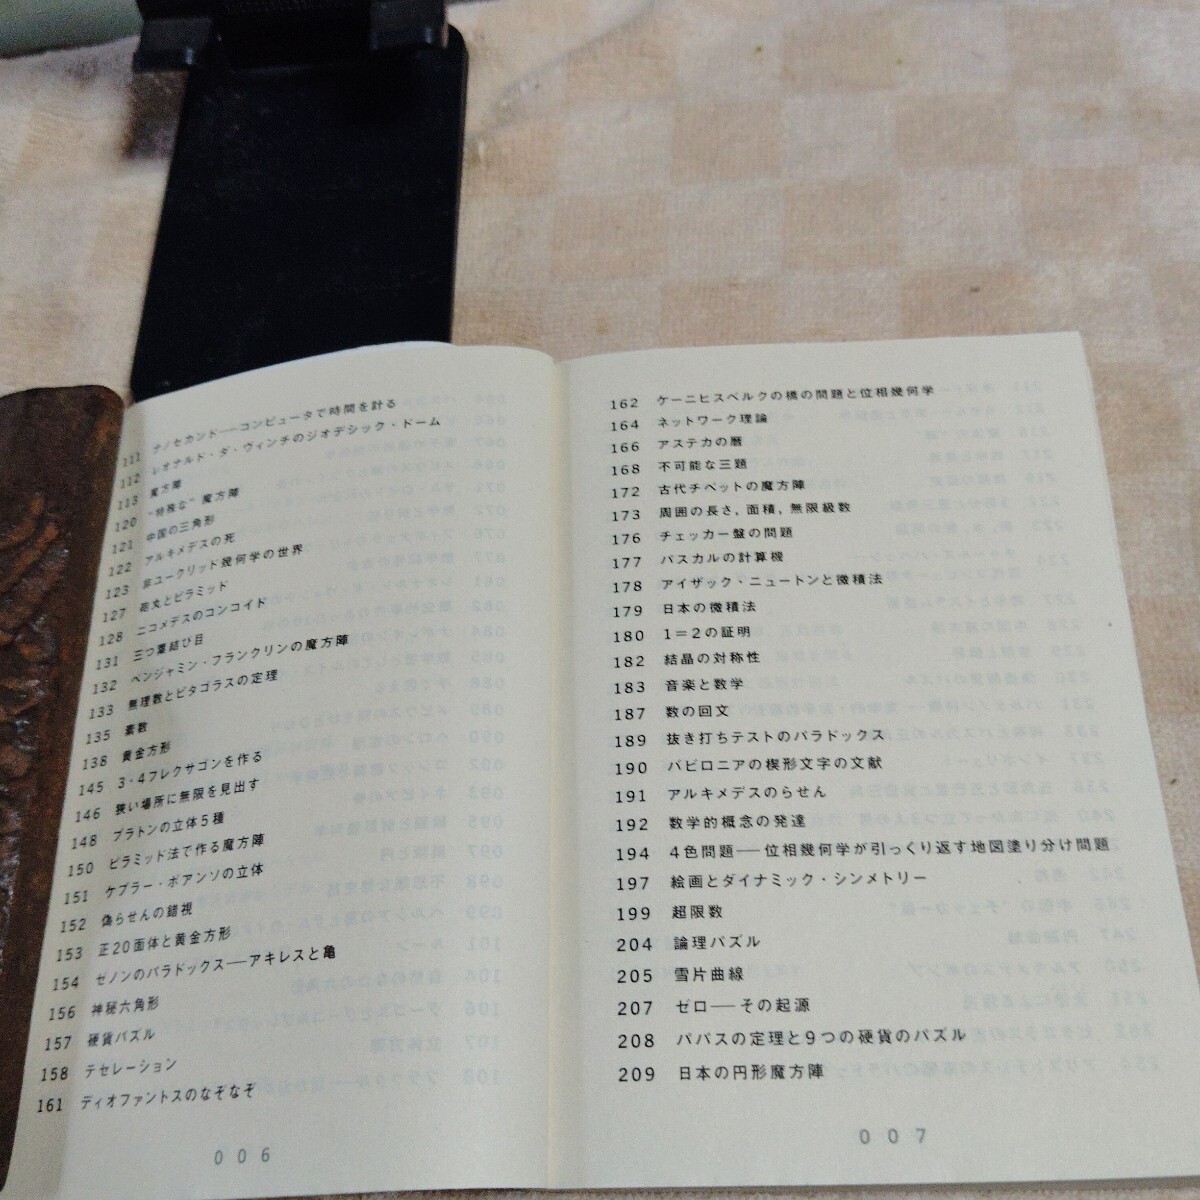 111 ナノセカンド──コンピュータで時間を計る
112 レオナルド・ダ・ヴィンチのジオデシック・ドーム
113 魔方陣
120 “特殊な”魔方陣
121 中国の三角形
122 アルキメデスの死
123 非ユークリッド幾何学の世界
127 砲丸とピラミッド
128 ニコメデスのコンコイド
131 三つ葉結び目
132 ベンジャミン・フランクリンの魔方陣
133 無理数とピタゴラスの定理
135 素数
138 黄金方形
145 3・4フレクサゴンを作る
146 狭い場所に無限を見出す
148 プラトンの立体5種
150 ピラミッド法で作る魔方陣
151 ケプラー・ポアンソの立体
152 偽らせんの錯視
153 正20面体と黄金方形
154 ゼノンのパラドックス──アキレスと亀
156 神秘六角形
157 硬貨パズル
158 テセレーション
161 ディオファントスのなぞなぞ
006
162 ケーニヒスベルクの橋の問題と位相幾何学
164 ネットワーク理論
166 アステカの暦
168 不可能な三題
172 古代チベットの魔方陣
173 周囲の長さ，面積，無限級数
176 チェッカー盤の問題
177 パスカルの計算機
178 アイザック・ニュートンと微積法
179 日本の微積法
180 1＝2の証明
182 結晶の対称性
183 音楽と数学
187 数の回文
189 抜き打ちテストのパラドックス
190 バビロニアの楔形文字の文献
191 アルキメデスのらせん
192 数学的概念の発達
194 4色問題──位相幾何学が引っくり返す地図塗り分け問題
197 絵画とダイナミック・シンメトリー
199 超限数
204 論理パズル
205 雪片曲線
207 ゼロ──その起源
208 パパスの定理と9つの硬貨のパズル
209 日本の円形魔方陣
007